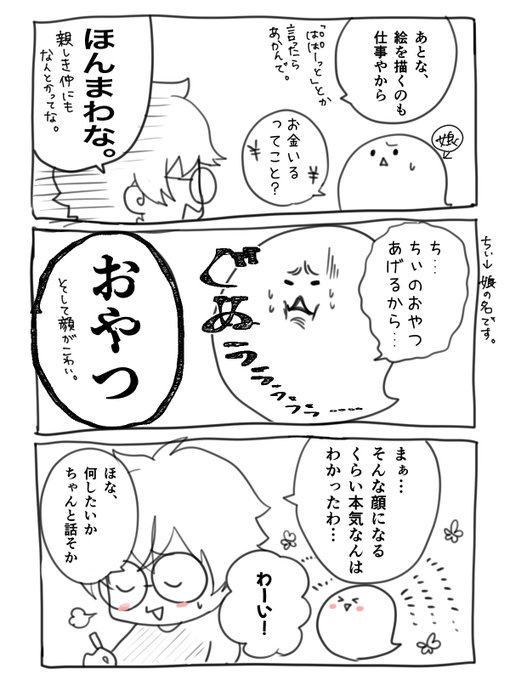 あとな、
絵を描くのも
仕事やから
「ぱぱーっと」とか
言ったら
あかんで。
娘
お金いる
ってこと？
¥
¥
ほんまわな。
親しき仲にも
なんとかってな。
ち…
ちぃのおやつ
あげるから…
ちぃ→娘の名です。
ぐぬぅ
おやつ
そして顔がこわい。
まぁ…
そんな顔になる
くらい本気なんは
わかったわ…
わーい！
ほな、
何したいか
ちゃんと話そか